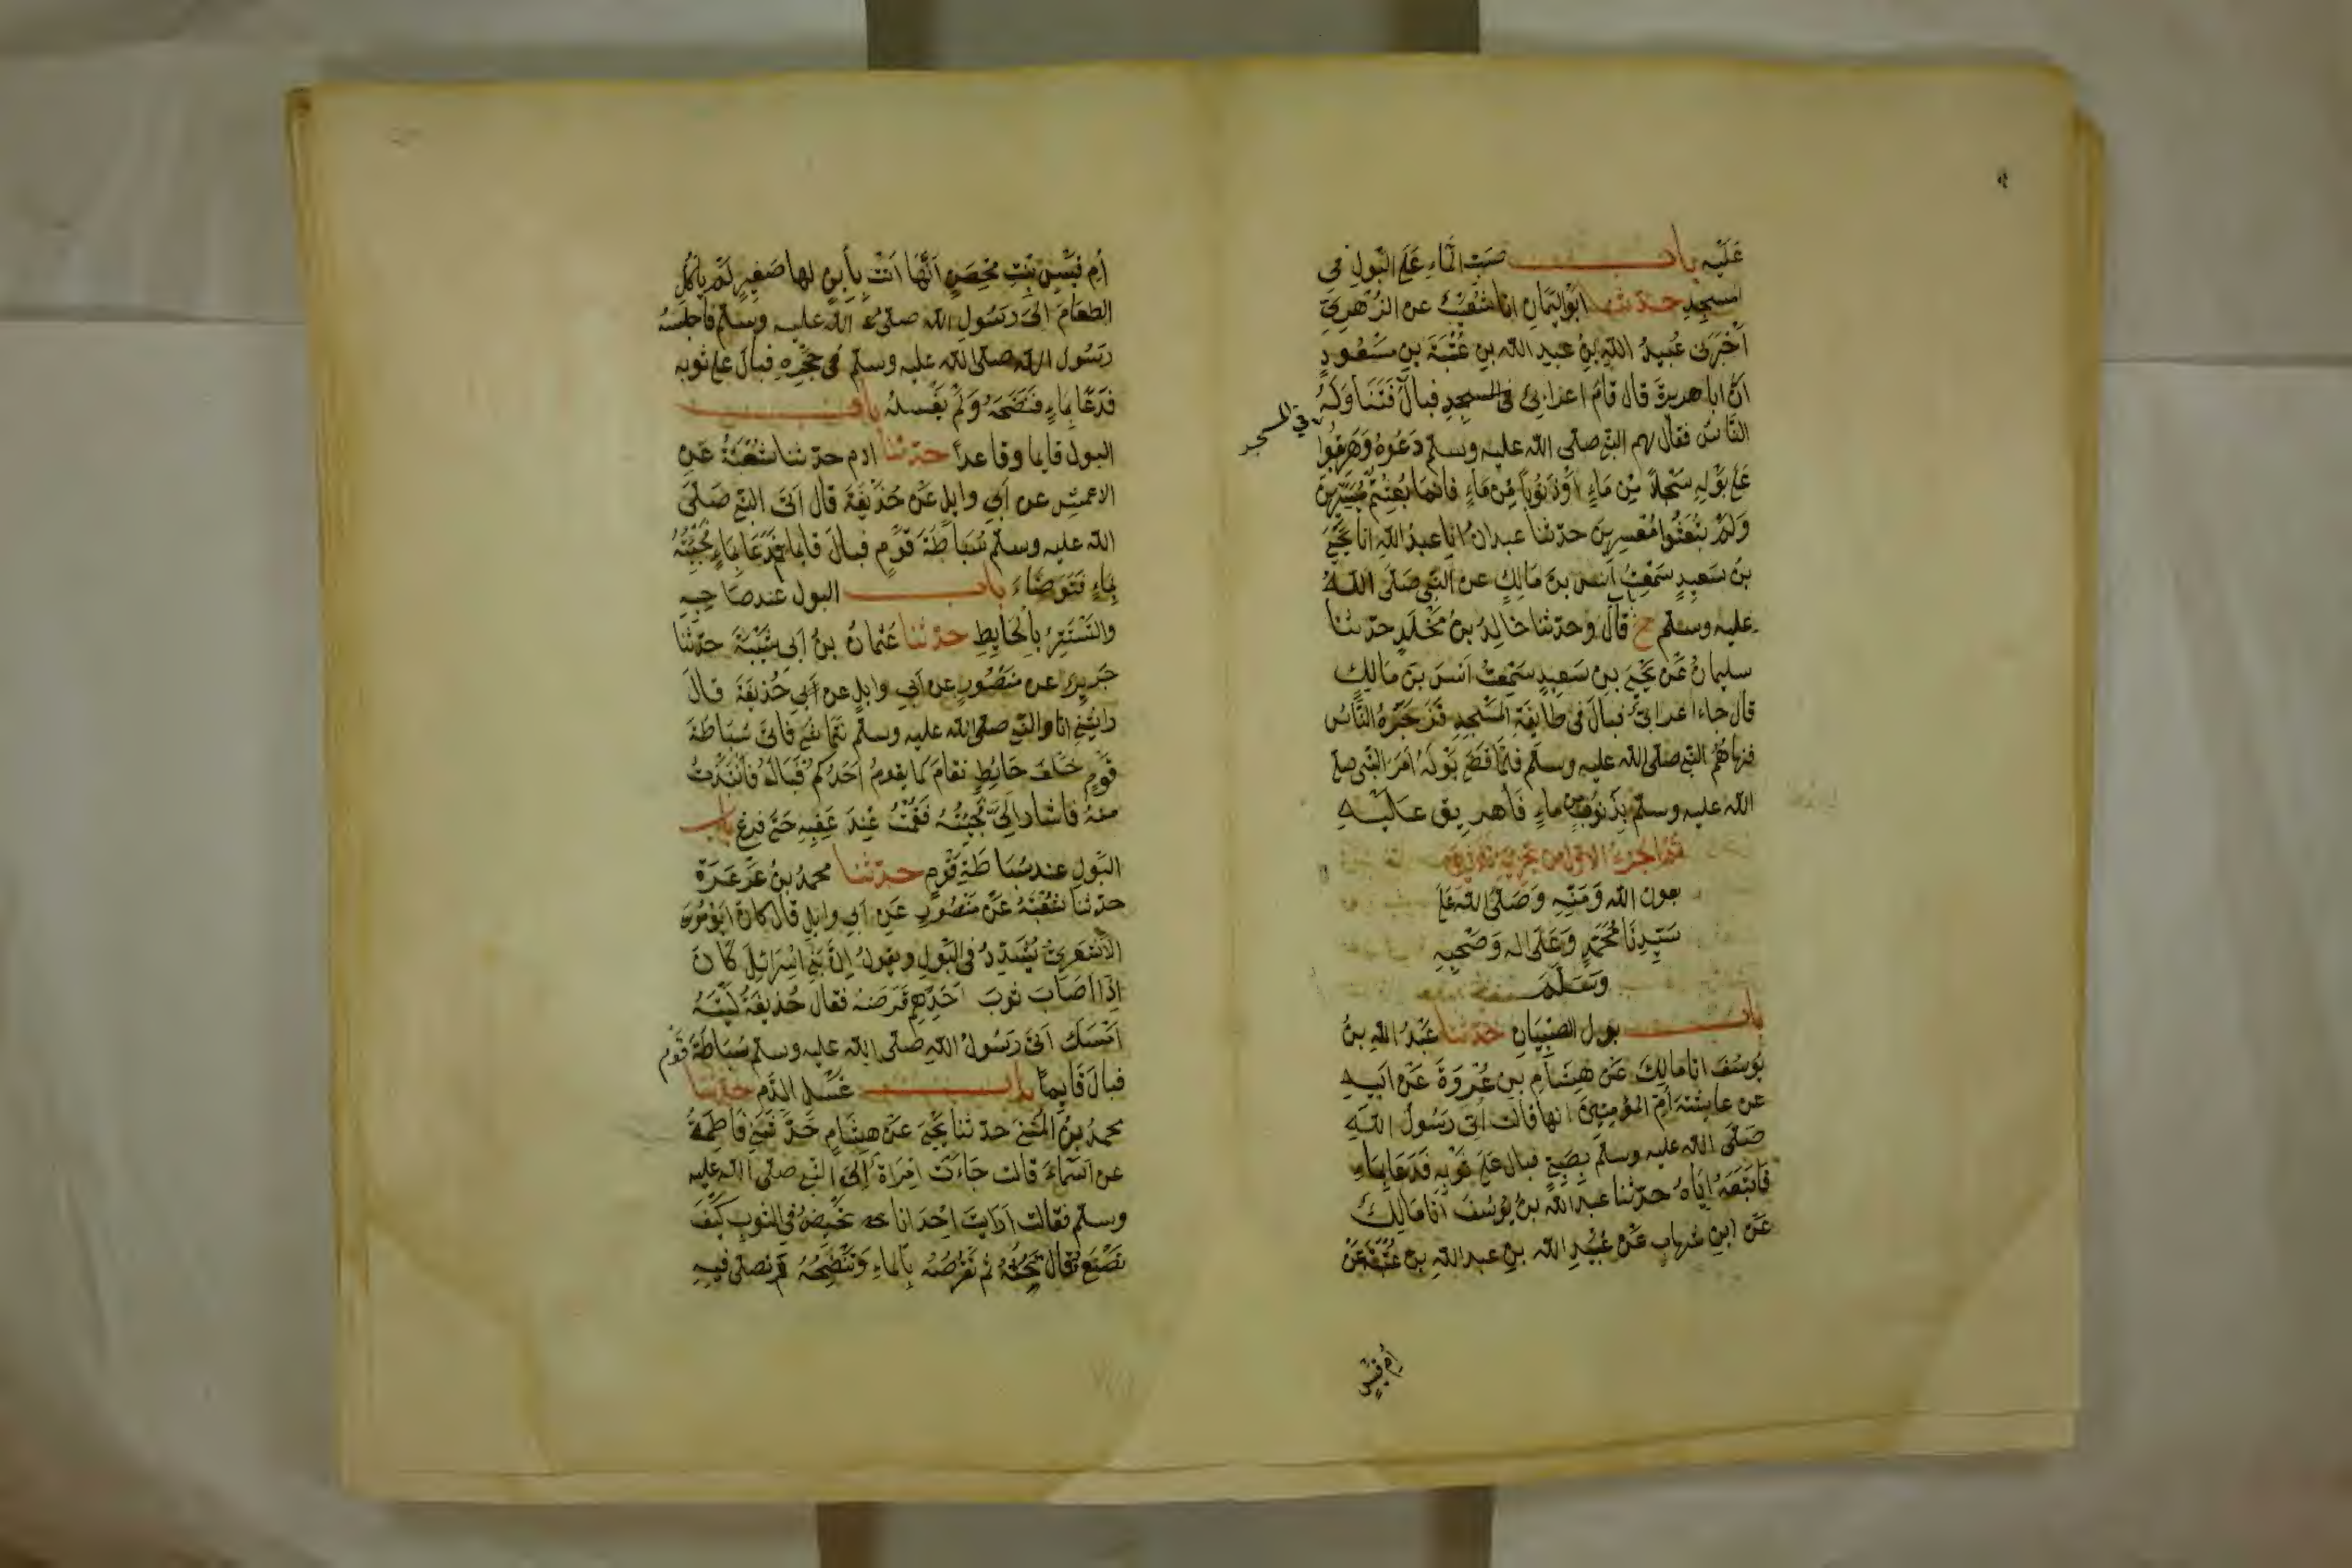 عَلَيْهِ بابُ صَبِّ الْمَاءِ عَلَى الْبَوْلِ فِى
المسجِدِ حدثنا ابُوالْيَمَانِ انا شُعَيْبٌ عن الزُّهْرِىِّ
اَخْبَرَنى عُبَيْدُ اللهِ بْنُ عبدِ الله بنِ عُتْبَةَ بنِ مَسْعُودٍ
اَنَّ ابا هريرةَ قال قامَ اعرابِىٌّ فى المسجدِ فبالَ فَتَنَاوَلَهُ
فى المسجد
النَّاسُ فقال لهم النبى صلى الله عليه وسلم دَعُوهُ وَهَرِيقُوا
عَلَى بَوْلِهِ سَجْلاً مِنْ مَاءٍ اَوْ ذَنُوبًا مِنْ مَاءٍ فانما بُعِثْتُمْ مُيَسِّرِينَ
وَلَمْ تُبْعَثُوا مُعَسِّرِينَ حدثنا عبدانُ انا عبدُ اللهِ انا يَحْيَى
بنُ سَعِيدٍ سَمِعْتُ اَنَسَ بنَ مَالِكٍ عن النَّبِى صَلَّى اللهُ
عليه وسلم ح قال وحدثنا خالِدُ بنُ مَخْلَدٍ حدثنا
سليمانُ عَنْ يَحْيَى بنِ سَعِيدٍ سَمِعْتُ اَنَسَ بنَ مَالِكٍ
قال جاءَ اعرابىٌّ فبالَ فى طَائِفَةِ الْمَسْجِدِ فَزَجَرَهُ النَّاسُ
فنهاهُمُ النبى صلى الله عليه وسلم فلمّا قَضَى بَوْلَهُ اَمَرَ النَّبِى صلى
الله عليه وسلم بِذَنُوبٍ من ماءٍ فَاهريق عَلَيْهِ
بعون الله وَمَنِّهِ وَصَلَّى الله عَلَى
سَيِّدِنَا مُحَمَّدٍ وَعَلَى اله وَصَحْبِهِ
وَسَلَّمَ
بابُ بولِ الصِّبْيَانِ حدثنا عَبْدُ اللهِ بنُ
يُوسُفَ انا مالِكٌ عَنْ هِشَامِ بنِ عُرْوَةَ عَنْ ابيهِ
عن عايشةَ اُمِّ المُؤمِنِينَ انها قالت اُتِىَ رَسُولُ اللهِ
صَلَّى الله عليه وسلم بِصَبِىٍّ فبال عَلَى ثَوْبِهِ فَدَعَا بِمَاءٍ
فَاتْبَعَهُ اِيَّاهُ حدّثنا عبدُ الله بنُ يُوسُفَ اَنَا مَالِكٌ
عَنْ ابنِ شهابٍ عَنْ عُبَيْدِ الله بنِ عبدِ اللهِ بن عُتْبَةَ عَنْ
اُم قيسٍ
اُم قيسٍ بنتِ مِحْصَنٍ اَنَّهَا اَتَتْ بِاَبْنٍ لها صَغِيرٍ لَمْ يَاْكُلِ
الطعامَ اِلَى رَسُولِ الله صلى الله عليه وسلم فَاَجْلَسَهُ
رَسُولُ الله صلى الله عليه وسلم فى حِجْرِهِ فبالَ على ثوبه
فَدَعَا بِمَاءٍ فَنَضَحَهُ وَلَمْ يَغْسِلْهُ بابُ
البول قايما وقاعداً حدثنا ادم حدثنا شُعْبَةُ عَنِ
الاعمش عن اَبِى وايلٍ عَنْ حُذَيْفَةَ قال اَتَى النبى صَلَّى
الله عليه وسلم سُبَاطَةَ قَوْمٍ فبالَ قايما ثم دَعَا بِمَاءٍ فَجِئْتُهُ
بِمَاءٍ فَتَوَضَّاءَ بابُ البول عند صَاحِبِهِ
والتَّسَتُّرِ بِالْحَايِطِ حدثنا عثمانُ بنُ اَبى شَيْبَةَ حدّثنا
جَرِيرٌ عن مَنْصُورٍ عن اَبى وايلٍ عن اَبى حُذَيفَةَ قال
رايتُنِى انا والنبى صلى الله عليه وسلم نَتَمَاشَى فَاتَى سُبَاطَةَ
قَوْمٍ خَلْفَ حَايِطٍ فقامَ كما يقومُ اَحَدُكُمْ فَبَالَ فَانْتَبَذْتُ
منهُ فاشارَ اِلَىَّ فَجِئْتُهُ فَقُمْتُ عِنْدَ عَقِبِهِ حَتَّى فرغ بابُ
الْبَولِ عند سُبَاطَةِ قَوْمٍ حدّثنا محمدُ بنُ عَرْعَرَةَ
حدثنا شُعْبَةُ عَنْ مَنْصُورٍ عَنِ ابى وايلٍ قال كان اَبُو مُوسَى
الاَشْعَرِىُّ يُشَدِّدُ فى الْبَوْلِ ويقولُ اِنَّ بَنِى اِسْرَائِيلَ كَانَ
اِذَا اَصَابَ ثَوبَ اَحَدِهِم قَرَضَهُ فقال حُذَيفَةُ لَيْتَهُ
اَمْسَكَ اَتَى رَسُولُ الله صلى الله عليه وسلم سُبَاطَةَ قَوْمٍ
فبالَ قَايِمًا بابُ غَسْلِ الدَّمِ حدثنا
محمدُ بنُ الْمُثَنَّى حدثنا يَحْيَى عَنْ هِشَامٍ حَدَّثَتْنِى فَاطِمَةُ
عن اَسْمَاءَ قالت جَاءَتْ امْرَاَةٌ اِلَى النَّبى صلى الله عليه
وسلم فقالت اَرَايتَ اِحْدَانا تَحِيضُ فى الثوبِ كَيْفَ
تَصْنَعُ قال تَحُتُّهُ ثُمَّ تَقْرُصُهُ بِالْمَاءِ وَتَنْضَحُهُ ثم تصلى فيهِ